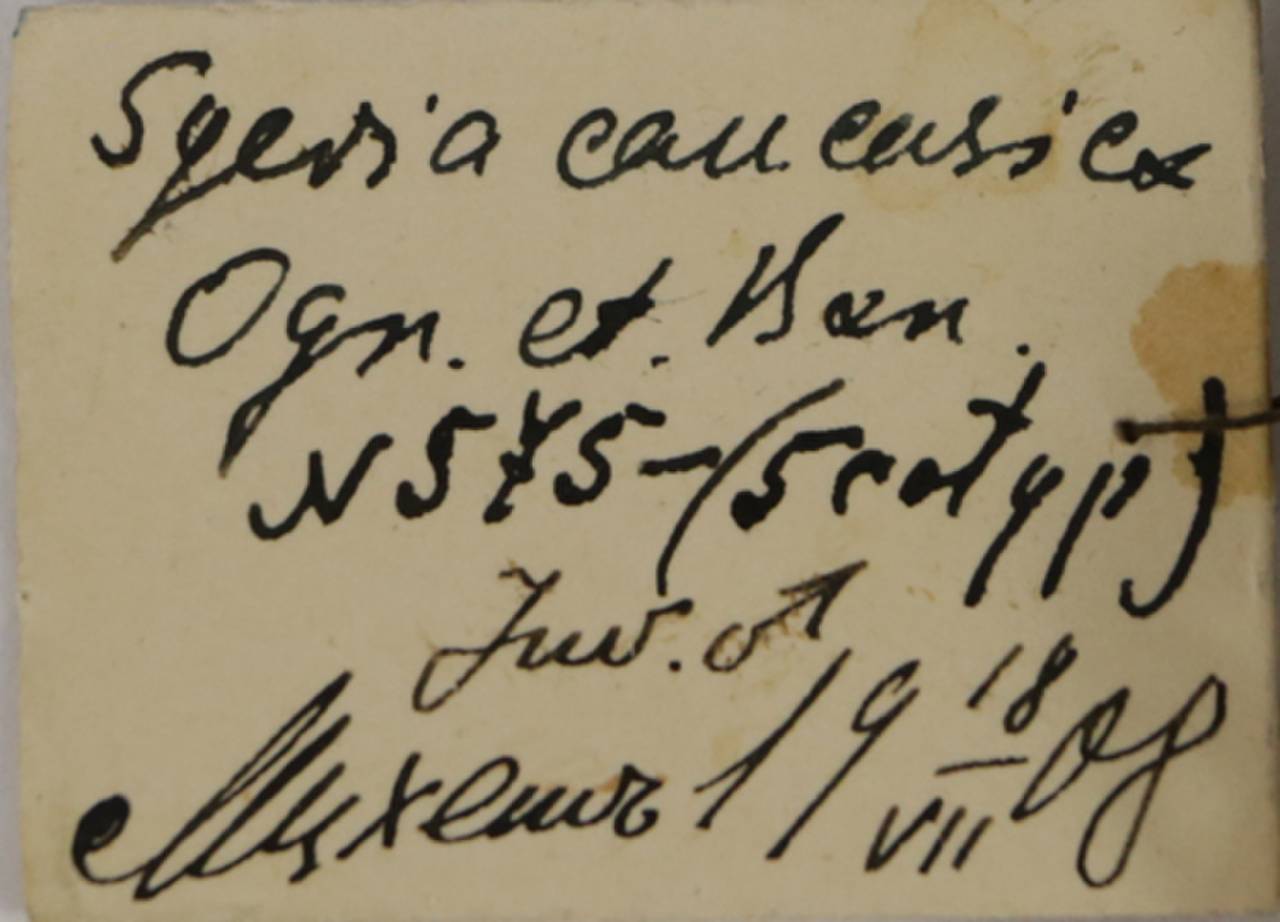 Sicista caucasica
Ogn. et. Ban.
N 575 - (5 cotyp)
Juv. ♂
Мцхетъ 19 18/VII 08